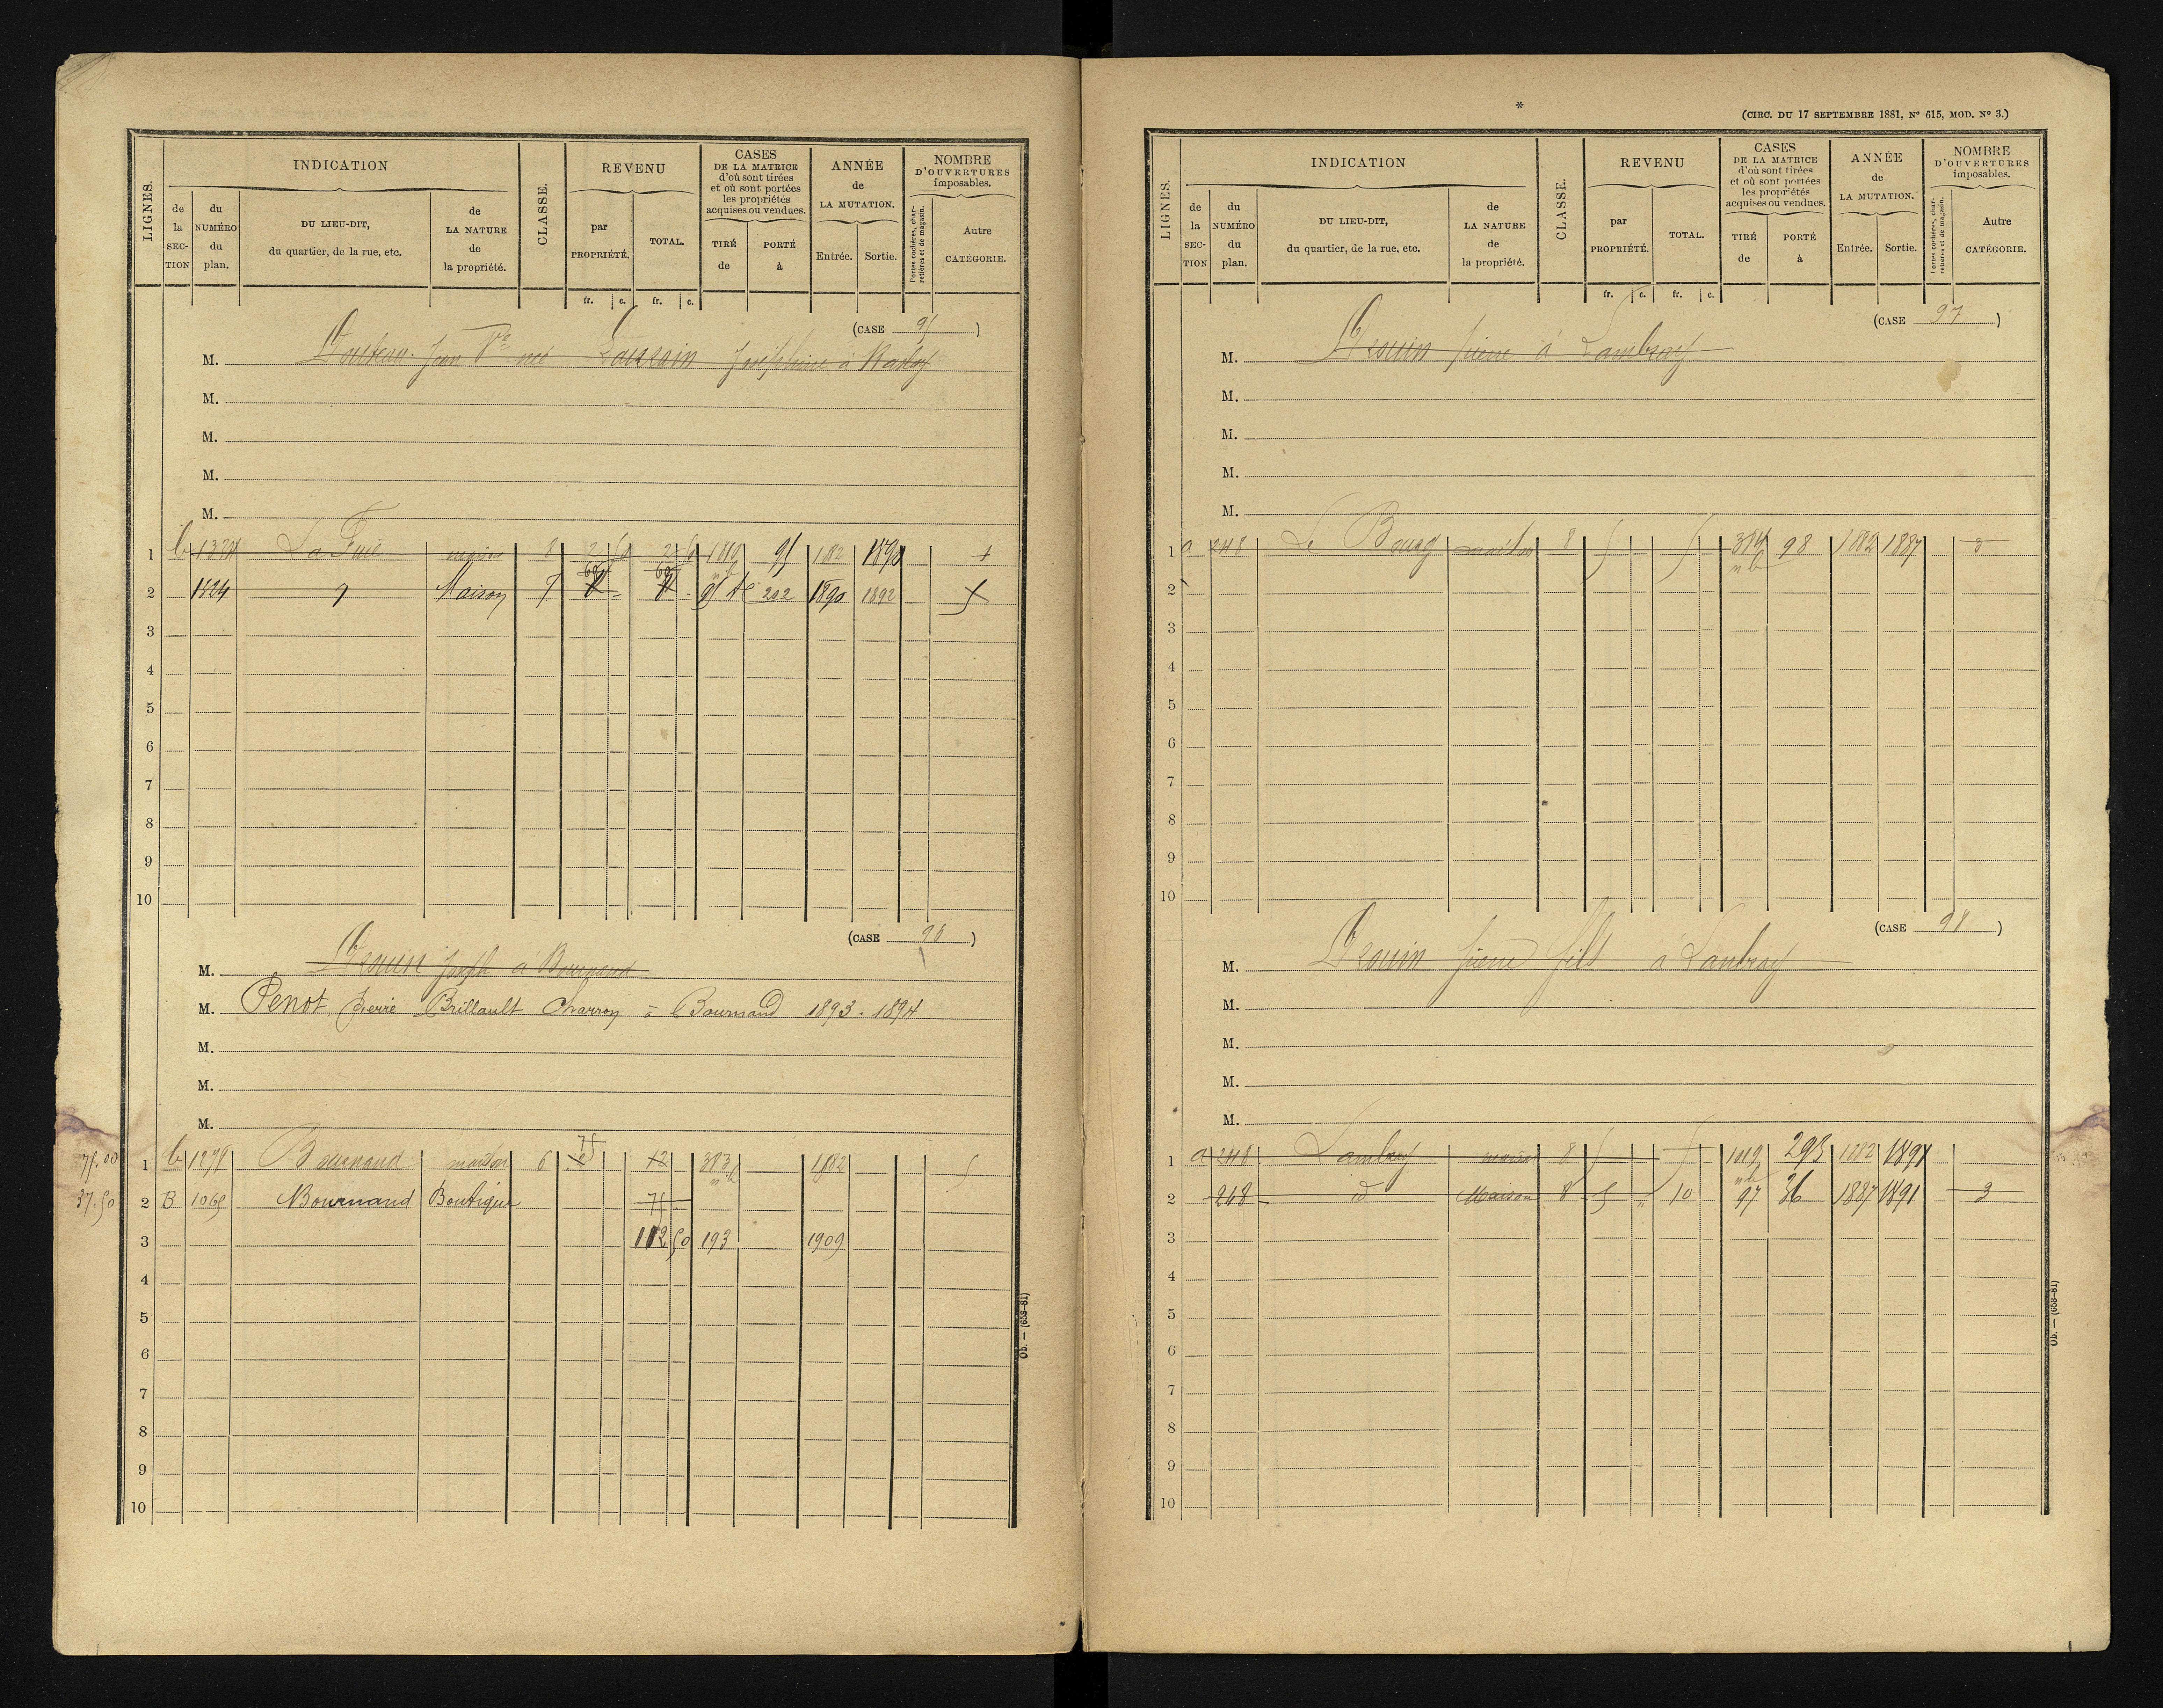 LIGNES.
INDICATION
de la SECTION
du NUMÉRO du plan.
DU LIEU-DIT, du quartier, de la rue, etc.
de LA NATURE de la propriété.
CLASSE.
REVENU
par PROPRIÉTÉ.
TOTAL.
fr. c. fr. c.
CASES DE LA MATRICE d'où sont tirées et où sont portées les propriétés acquises ou vendues.
TIRÉ de
PORTÉ à
ANNÉE de LA MUTATION.
Entrée. Sortie.
NOMBRE D'OUVERTURES imposables.
Portes cochères, charretières et de magasin.
Autre CATÉGORIE.
(CASE 95)
M. Jean Vve née Joséphine à
M.
M.
M.
M.
1 b 1324 La Fuie maison 8 2 50 2 50 95 1882 1890 1
2 1324 Maison 7 202 1890 1892
3
4
5
6
7
8
9
10
(CASE 96)
M. Drouin Joseph à Bournand
M. Penot Pierre Brillault Charron à Bournand 1893-1894
M.
M.
M.
75.00 1 b 1275 Bournand maison 6 75 12 383 1882 5
37.50 2 B 1069 Bournand Boutique 75
3 112 50 193 1909
4
5
6
7
8
9
10
Ob. — (653-81)
*
(CIRC. DU 17 SEPTEMBRE 1881, N° 615, MOD. N° 3.)
LIGNES.
INDICATION
de la SECTION
du NUMÉRO du plan.
DU LIEU-DIT, du quartier, de la rue, etc.
de LA NATURE de la propriété.
CLASSE.
REVENU
par PROPRIÉTÉ.
TOTAL.
fr. c. fr. c.
CASES DE LA MATRICE d'où sont tirées et où sont portées les propriétés acquises ou vendues.
TIRÉ de
PORTÉ à
ANNÉE de LA MUTATION.
Entrée. Sortie.
NOMBRE D'OUVERTURES imposables.
Portes cochères, charretières et de magasin.
Autre CATÉGORIE.
(CASE 97)
M. Drouin pierre à Lambray
M.
M.
M.
M.
1 a 248 Le Bourg maison 8 5 5 384 98 1882 1887 3
2
3
4
5
6
7
8
9
10
(CASE 98)
M. Drouin pierre fils à Lambray
M.
M.
M.
M.
1 a 248 Lambray maison 8 5 5 293 1882 1897
2 248 d Maison 8 5 " 10 97 36 1887 1891 3
3
4
5
6
7
8
9
10
Ob. — (653-81)